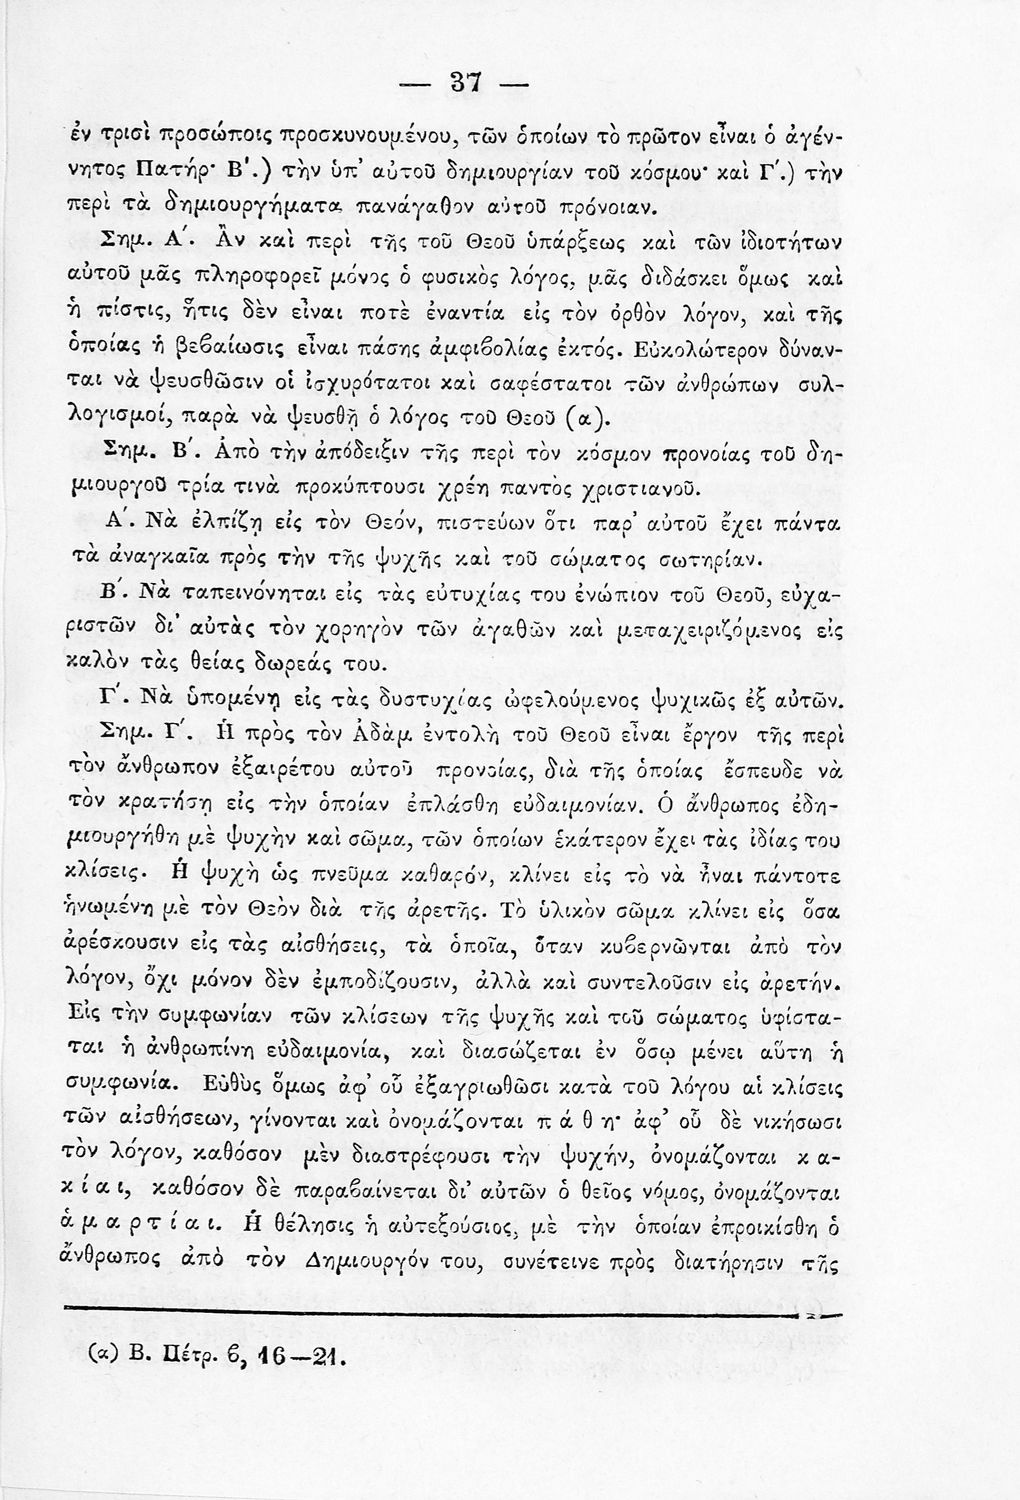 — 37 —
ἐν τρισὶ προσώποις προσκυνουμένου, τῶν ὁποίων τὸ πρῶτον εἶναι ὁ ἀγέν-
νητος Πατήρ· Β΄.) τὴν ὑπ’ αὐτοῦ δημιουργίαν τοῦ κόσμου· καὶ Γ΄.) τὴν
περὶ τὰ δημιουργήματα πανάγαθον αὐτοῦ πρόνοιαν.
Σημ. Α΄. Ἂν καὶ περὶ τῆς τοῦ Θεοῦ ὑπάρξεως καὶ τῶν ἰδιοτήτων
αὐτοῦ μᾶς πληροφορεῖ μόνος ὁ φυσικὸς λόγος, μᾶς διδάσκει ὅμως καὶ
ἡ πίστις, ἥτις δὲν εἶναι ποτὲ ἐναντία εἰς τὸν ὀρθὸν λόγον, καὶ τῆς
ὁποίας ἡ βεβαίωσις εἶναι πάσης ἀμφιβολίας ἐκτός. Εὐκολώτερον δύναν-
ται νὰ ψευσθῶσιν οἱ ἰσχυρότατοι καὶ σαφέστατοι τῶν ἀνθρώπων συλ-
λογισμοί, παρὰ νὰ ψευσθῇ ὁ λόγος τοῦ Θεοῦ (α).
Σημ. Β΄. Ἀπὸ τὴν ἀπόδειξιν τῆς περὶ τὸν κόσμον προνοίας τοῦ δη-
μιουργοῦ τρία τινὰ προκύπτουσι χρέη παντὸς χριστιανοῦ.
Α΄. Νὰ ἐλπίζῃ εἰς τὸν Θεόν, πιστεύων ὅτι παρ’ αὐτοῦ ἔχει πάντα
τὰ ἀναγκαῖα πρὸς τὴν τῆς ψυχῆς καὶ τοῦ σώματος σωτηρίαν.
Β΄. Νὰ ταπεινόνηται εἰς τὰς εὐτυχίας του ἐνώπιον τοῦ Θεοῦ, εὐχα-
ριστῶν δι’ αὐτὰς τὸν χορηγὸν τῶν ἀγαθῶν καὶ μεταχειριζόμενος εἰς
καλὸν τὰς θείας δωρεάς του.
Γ΄. Νὰ ὑπομένῃ εἰς τὰς δυστυχίας ὠφελούμενος ψυχικῶς ἐξ αὐτῶν.
Σημ. Γ΄. Ἡ πρὸς τὸν Ἀδὰμ ἐντολὴ τοῦ Θεοῦ εἶναι ἔργον τῆς περὶ
τὸν ἄνθρωπον ἐξαιρέτου αὐτοῦ προνοίας, διὰ τῆς ὁποίας ἔσπευδε νὰ
τὸν κρατήσῃ εἰς τὴν ὁποίαν ἐπλάσθη εὐδαιμονίαν. Ὁ ἄνθρωπος ἐδη-
μιουργήθη μὲ ψυχὴν καὶ σῶμα, τῶν ὁποίων ἑκάτερον ἔχει τὰς ἰδίας του
κλίσεις. Ἡ ψυχὴ ὡς πνεῦμα καθαρόν, κλίνει εἰς τὸ νὰ ἦναι πάντοτε
ἡνωμένη μὲ τὸν Θεὸν διὰ τῆς ἀρετῆς. Τὸ ὑλικὸν σῶμα κλίνει εἰς ὅσα
ἀρέσκουσιν εἰς τὰς αἰσθήσεις, τὰ ὁποῖα, ὅταν κυβερνῶνται ἀπὸ τὸν
λόγον, ὄχι μόνον δὲν ἐμποδίζουσιν, ἀλλὰ καὶ συντελοῦσιν εἰς ἀρετήν.
Εἰς τὴν συμφωνίαν τῶν κλίσεων τῆς ψυχῆς καὶ τοῦ σώματος ὑφίστα-
ται ἡ ἀνθρωπίνη εὐδαιμονία, καὶ διασώζεται ἐν ὅσῳ μένει αὕτη ἡ
συμφωνία. Εὐθὺς ὅμως ἀφ’ οὗ ἐξαγριωθῶσι κατὰ τοῦ λόγου αἱ κλίσεις
τῶν αἰσθήσεων, γίνονται καὶ ὀνομάζονται π ά θ η· ἀφ’ οὗ δὲ νικήσωσι
τὸν λόγον, καθόσον μὲν διαστρέφουσι τὴν ψυχήν, ὀνομάζονται κ α-
κ ί α ι, καθόσον δὲ παραβαίνεται δι’ αὐτῶν ὁ θεῖος νόμος, ὀνομάζονται
ἁ μ α ρ τ ί α ι. Ἡ θέλησις ἡ αὐτεξούσιος, μὲ τὴν ὁποίαν ἐπροικίσθη ὁ
ἄνθρωπος ἀπὸ τὸν Δημιουργόν του, συνέτεινε πρὸς διατήρησιν τῆς
(α) Β. Πέτρ. β, 16—21.